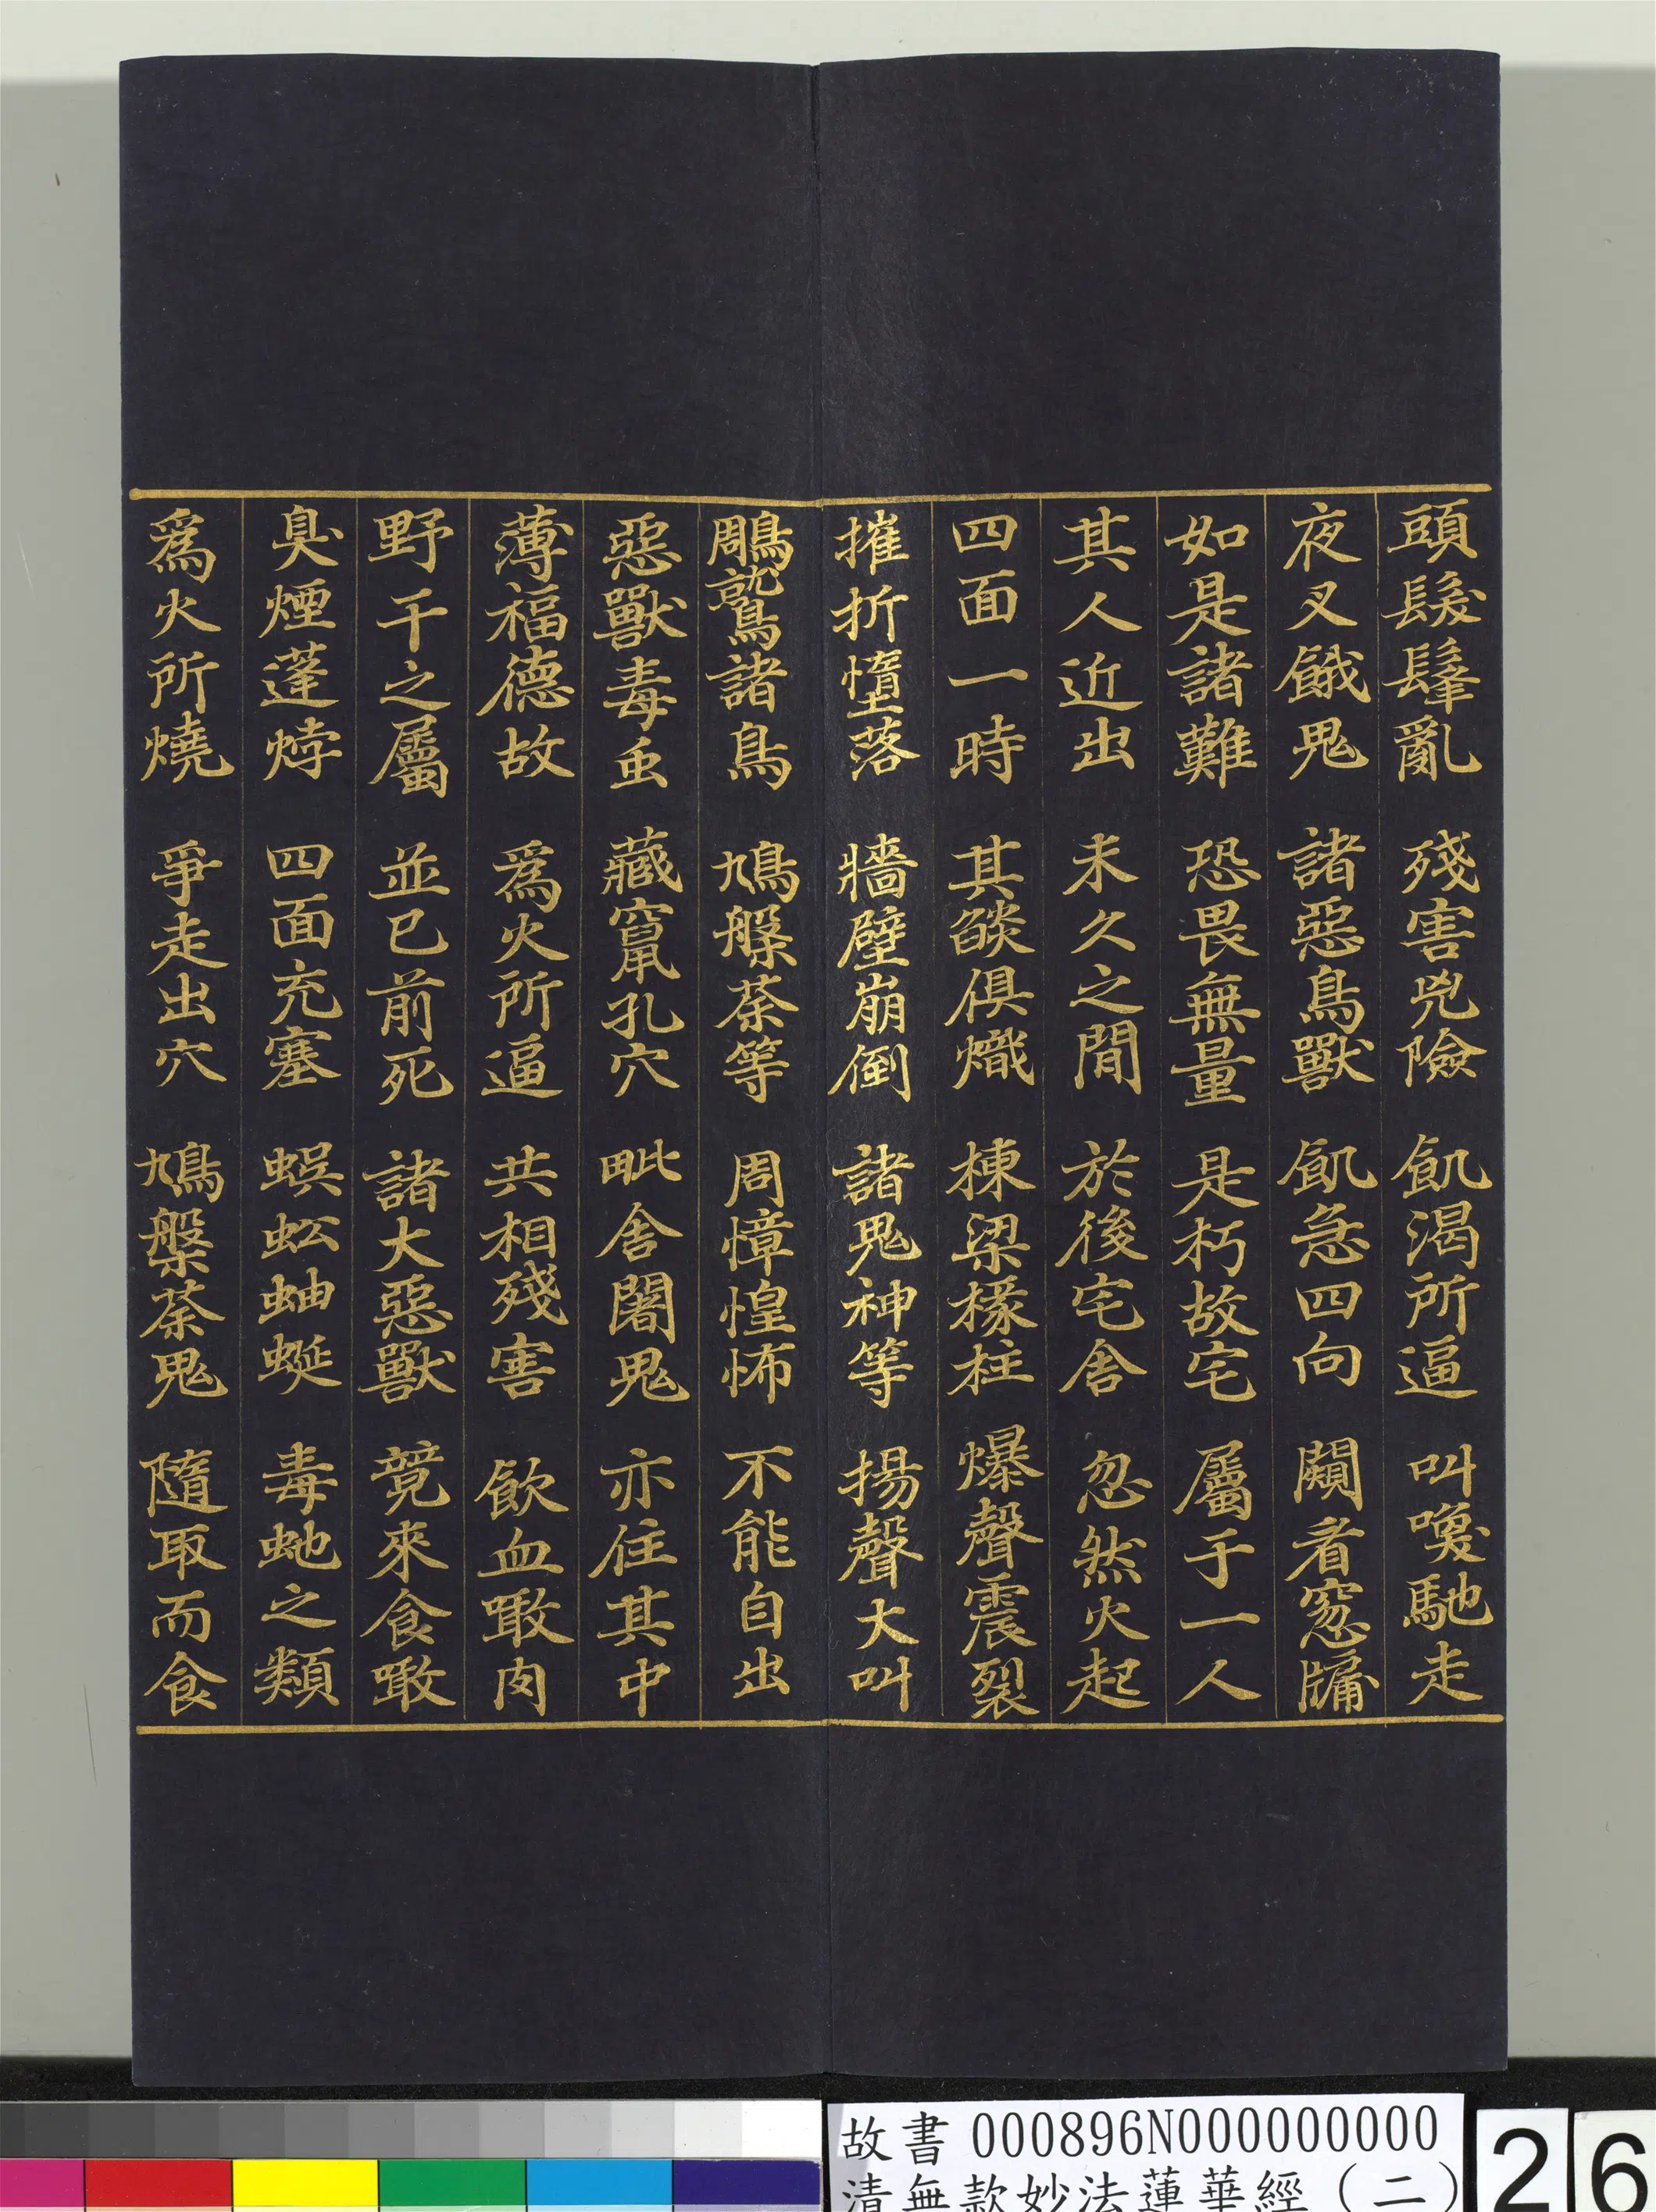 頭髮髼亂 殘害兇險 飢渴所逼 叫喚馳走
夜叉餓鬼 諸惡鳥獸 飢急四向 闚看窓牖
如是諸難 恐畏無量 是朽故宅 屬于一人
其人近出 未久之間 於後宅舍 忽然火起
四面一時 其燄俱熾 棟梁椽柱 爆聲震裂
摧折墮落 牆壁崩倒 諸鬼神等 揚聲大叫
鵰鷲諸鳥 鳩槃荼等 周慞惶怖 不能自出
惡獸毒虫 藏竄孔穴 毗舍闍鬼 亦住其中
薄福德故 爲火所逼 共相殘害 飲血噉肉
野干之屬 並已前死 諸大惡獸 競來食噉
臭煙蓬㶿 四面充塞 蜈蚣蚰蜒 毒虵之類
爲火所燒 爭走出穴 鳩槃荼鬼 隨取而食
故書 000896N000000000
清無款妙法蓮華經(二)
26